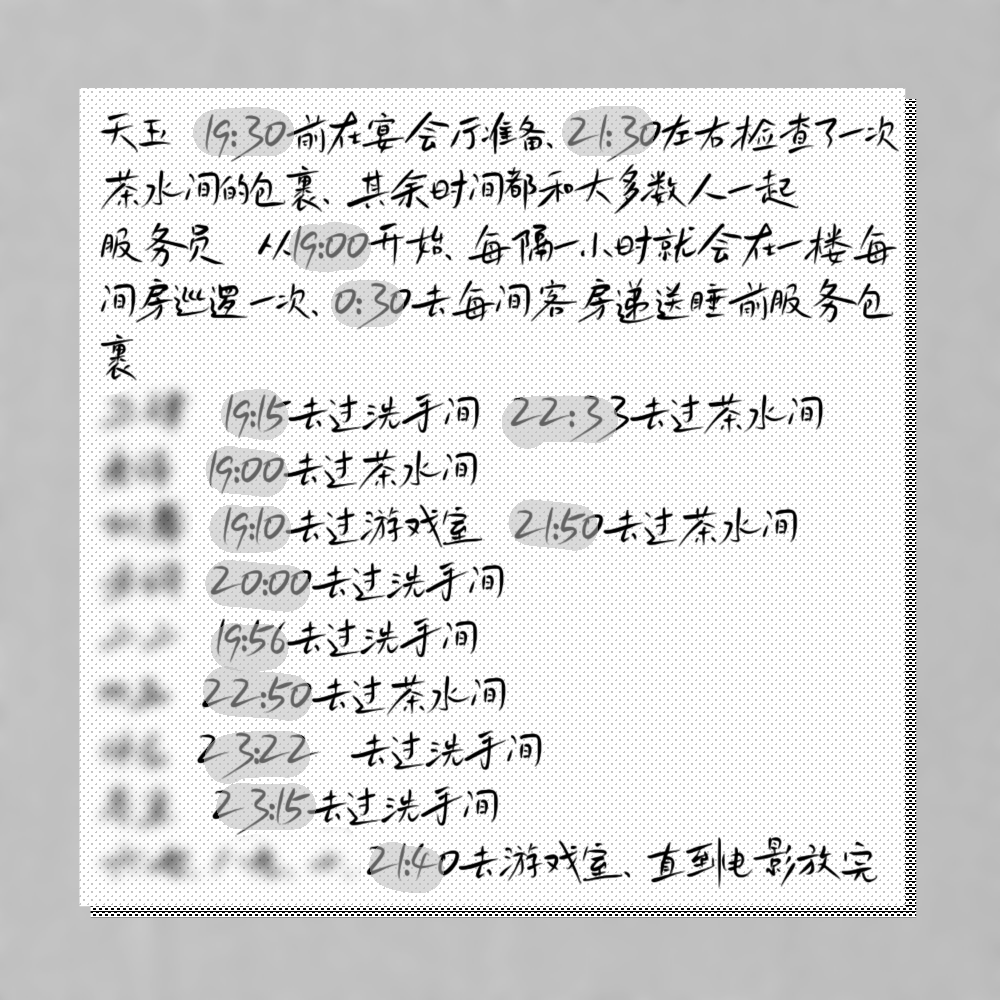 天玉 19:30前在宴会厅准备、21:30左右检查了一次
茶水间的包裹、其余时间都和大多数人一起
服务员 从19:00开始、每隔一小时就会在一楼每
间房巡逻一次、0:30去每间客房递送睡前服务包
裹
19:15去过洗手间 22:33去过茶水间
19:00去过茶水间
19:10去过游戏室 21:50去过茶水间
20:00去过洗手间
19:56去过洗手间
22:50去过茶水间
23:22 去过洗手间
23:15去过洗手间
21:40去游戏室、直到电影放完